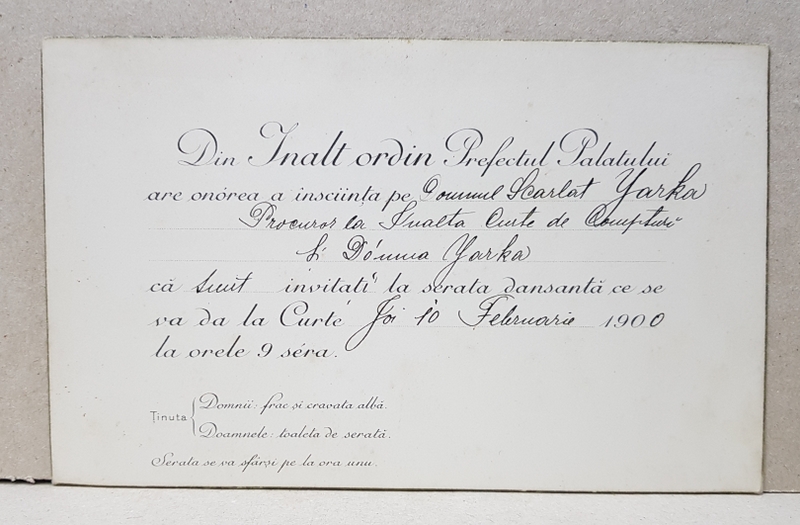 Din Inalt ordin Prefectul Palatului
are onórea a însciința pe Domnul Scarlat Yarka
Procuror la Inalta Curte de Compturi
și Dómna Yarka
că sunt invitati la serata dansantă ce se
va da la Curte Joi 10 Februarie 1900
la orele 9 séra.
Ținuta
Domnii: frac și cravata albă.
Doamnele: toaleta de serată.
Serata se va sfârși pe la ora unu.